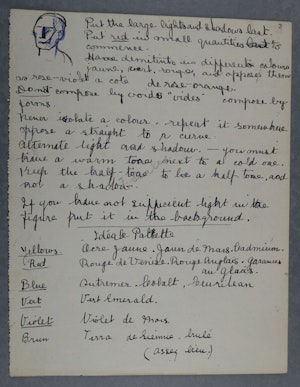 Put the large lights and shadows last.
Put red in small quantities to
commence.
Have demitints in different colours
jaune, vert, rouge, and oppose them
as rose-violet a cote de rose orange.
Dont compose by words "vides" compose by
forms.
Never isolate a colour. repeat it somewhere
oppose a straight to a curve.
Alternate light and shadow. — you must
have a warm tone next to a cold one.
Keep the half-tone to be a half tone, and
not a shadow.
If you have not sufficient light in the
figure put it in the background.
Ideale Pallette
Yellows Ocre Jaune. Jaun de Mars. Cadmium.
Red Rouge de Venise. Rouge Anglais. garance
Blue Outremer. Cobalt. Ceurulean
Vert Vert Emerald.
Violet Violet de Mars
Brun Terra de Sienne brulé
(assez bien)